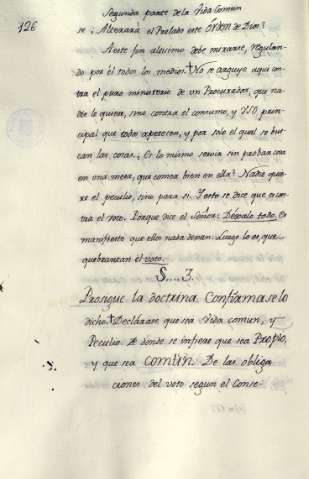 126
Segunda parte de la Vida Comun
se: Alterará el Prelado este Orden de Dios?
A este fin altisimo debe mirarse, regulan-
do por él todos los medios. No se arguye aqui con-
tra el puro ministerio de un Procurador, que na-
die lo quiere, sino contra el consumo, y uso prin-
cipal que todos apetecen, y por solo el qual se bus-
can las cosas. Es lo mismo servir sin probar cosa
en una mesa, que comer bien en ella? Nadie quie-
re el peculio, sino para sí. Y esto se dice que es con-
tra el voto. Porque dice el Señor: Dexalo todo. Es
manifiesto que ellos nada dexan. Luego lo es, que
quebrantan el voto.
§.... 3.
Prosigue la doctrina. Confirmase lo
dicho. Declárase que sea Vida comun, y
Peculio. De donde se infiere que sea Propio,
y que sea comun. De las obliga
ciones del voto segun el Conse-